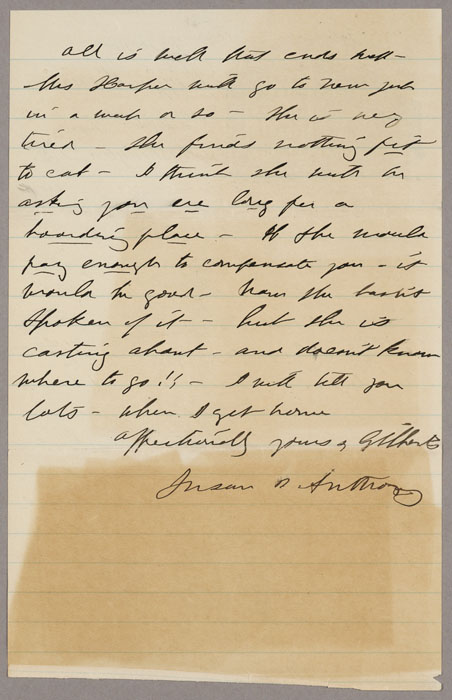 all is well that ends well -
Mrs Harper will go to New York
in a week or so - She is very
tired - She finds nothing fit
to eat - I think she will be
asking you ere long for a
boarding place - If she would
pay enough to compensate you - it
would be good - Now she hasn't
spoken of it - but she is
casting about - and doesn't know
where to go!! - I will tell you
lots - when I get home
affectionately yours &
Susan B. Anthony